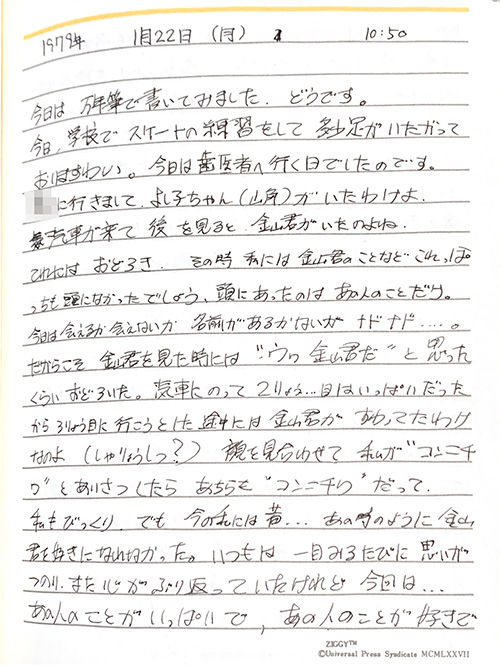 1979年 1月22日 (月) 10:50
今日は 万年筆で書いてみました. どうです。
今日, 学校で スケートの練習をして 多少足がいたがって
おはすわい。今日は歯医者へ行く日でしたのです。
に行きまして, よし子ちゃん(山角)がいたわけよ.
汽車が来て 後を見ると, 金山君がいたのよね.
これには おどろき. その時 私には金山君のことなど これっぽ
っちも頭になかったでしょう, 頭にあったのは あの人のことだけ。
今日は会えるか会えないか 名前があるかないか ナドナド....。
だからこそ 金山君を見た時には "ウワ 金山君だ" と思った
くらいおどろいた。汽車にのって 2りょう...目はいっぱいだった
から 3りょう目に行こうとした途中には金山君が すわってたわけ
なのよ (しゃりょうしつ?) 顔を見合わせて 私が"コンニチ
ワ"とあいさつしたら あちらも "コンニチワ"だって.
私もびっくり. でも 今の私には昔... あの時のように金山
君を好きになれなかった。いつもは 一目みるたびに 思いが
つのり, また心がぶり返っていたけれど 今回は...
あの人のことがいっぱいで, あの人のことが好きで
ZIGGY™
©Universal Press Syndicate MCMLXXVII